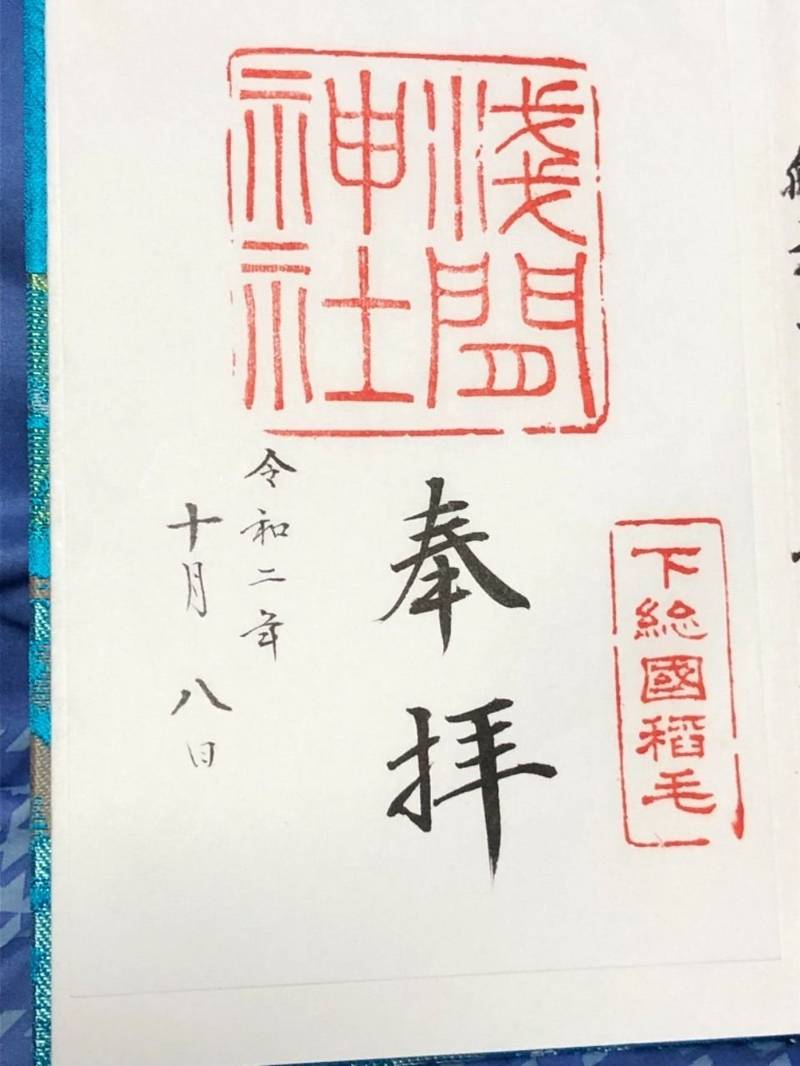 下総國稲毛
浅間
神社
奉拝
令和二年
十月八日